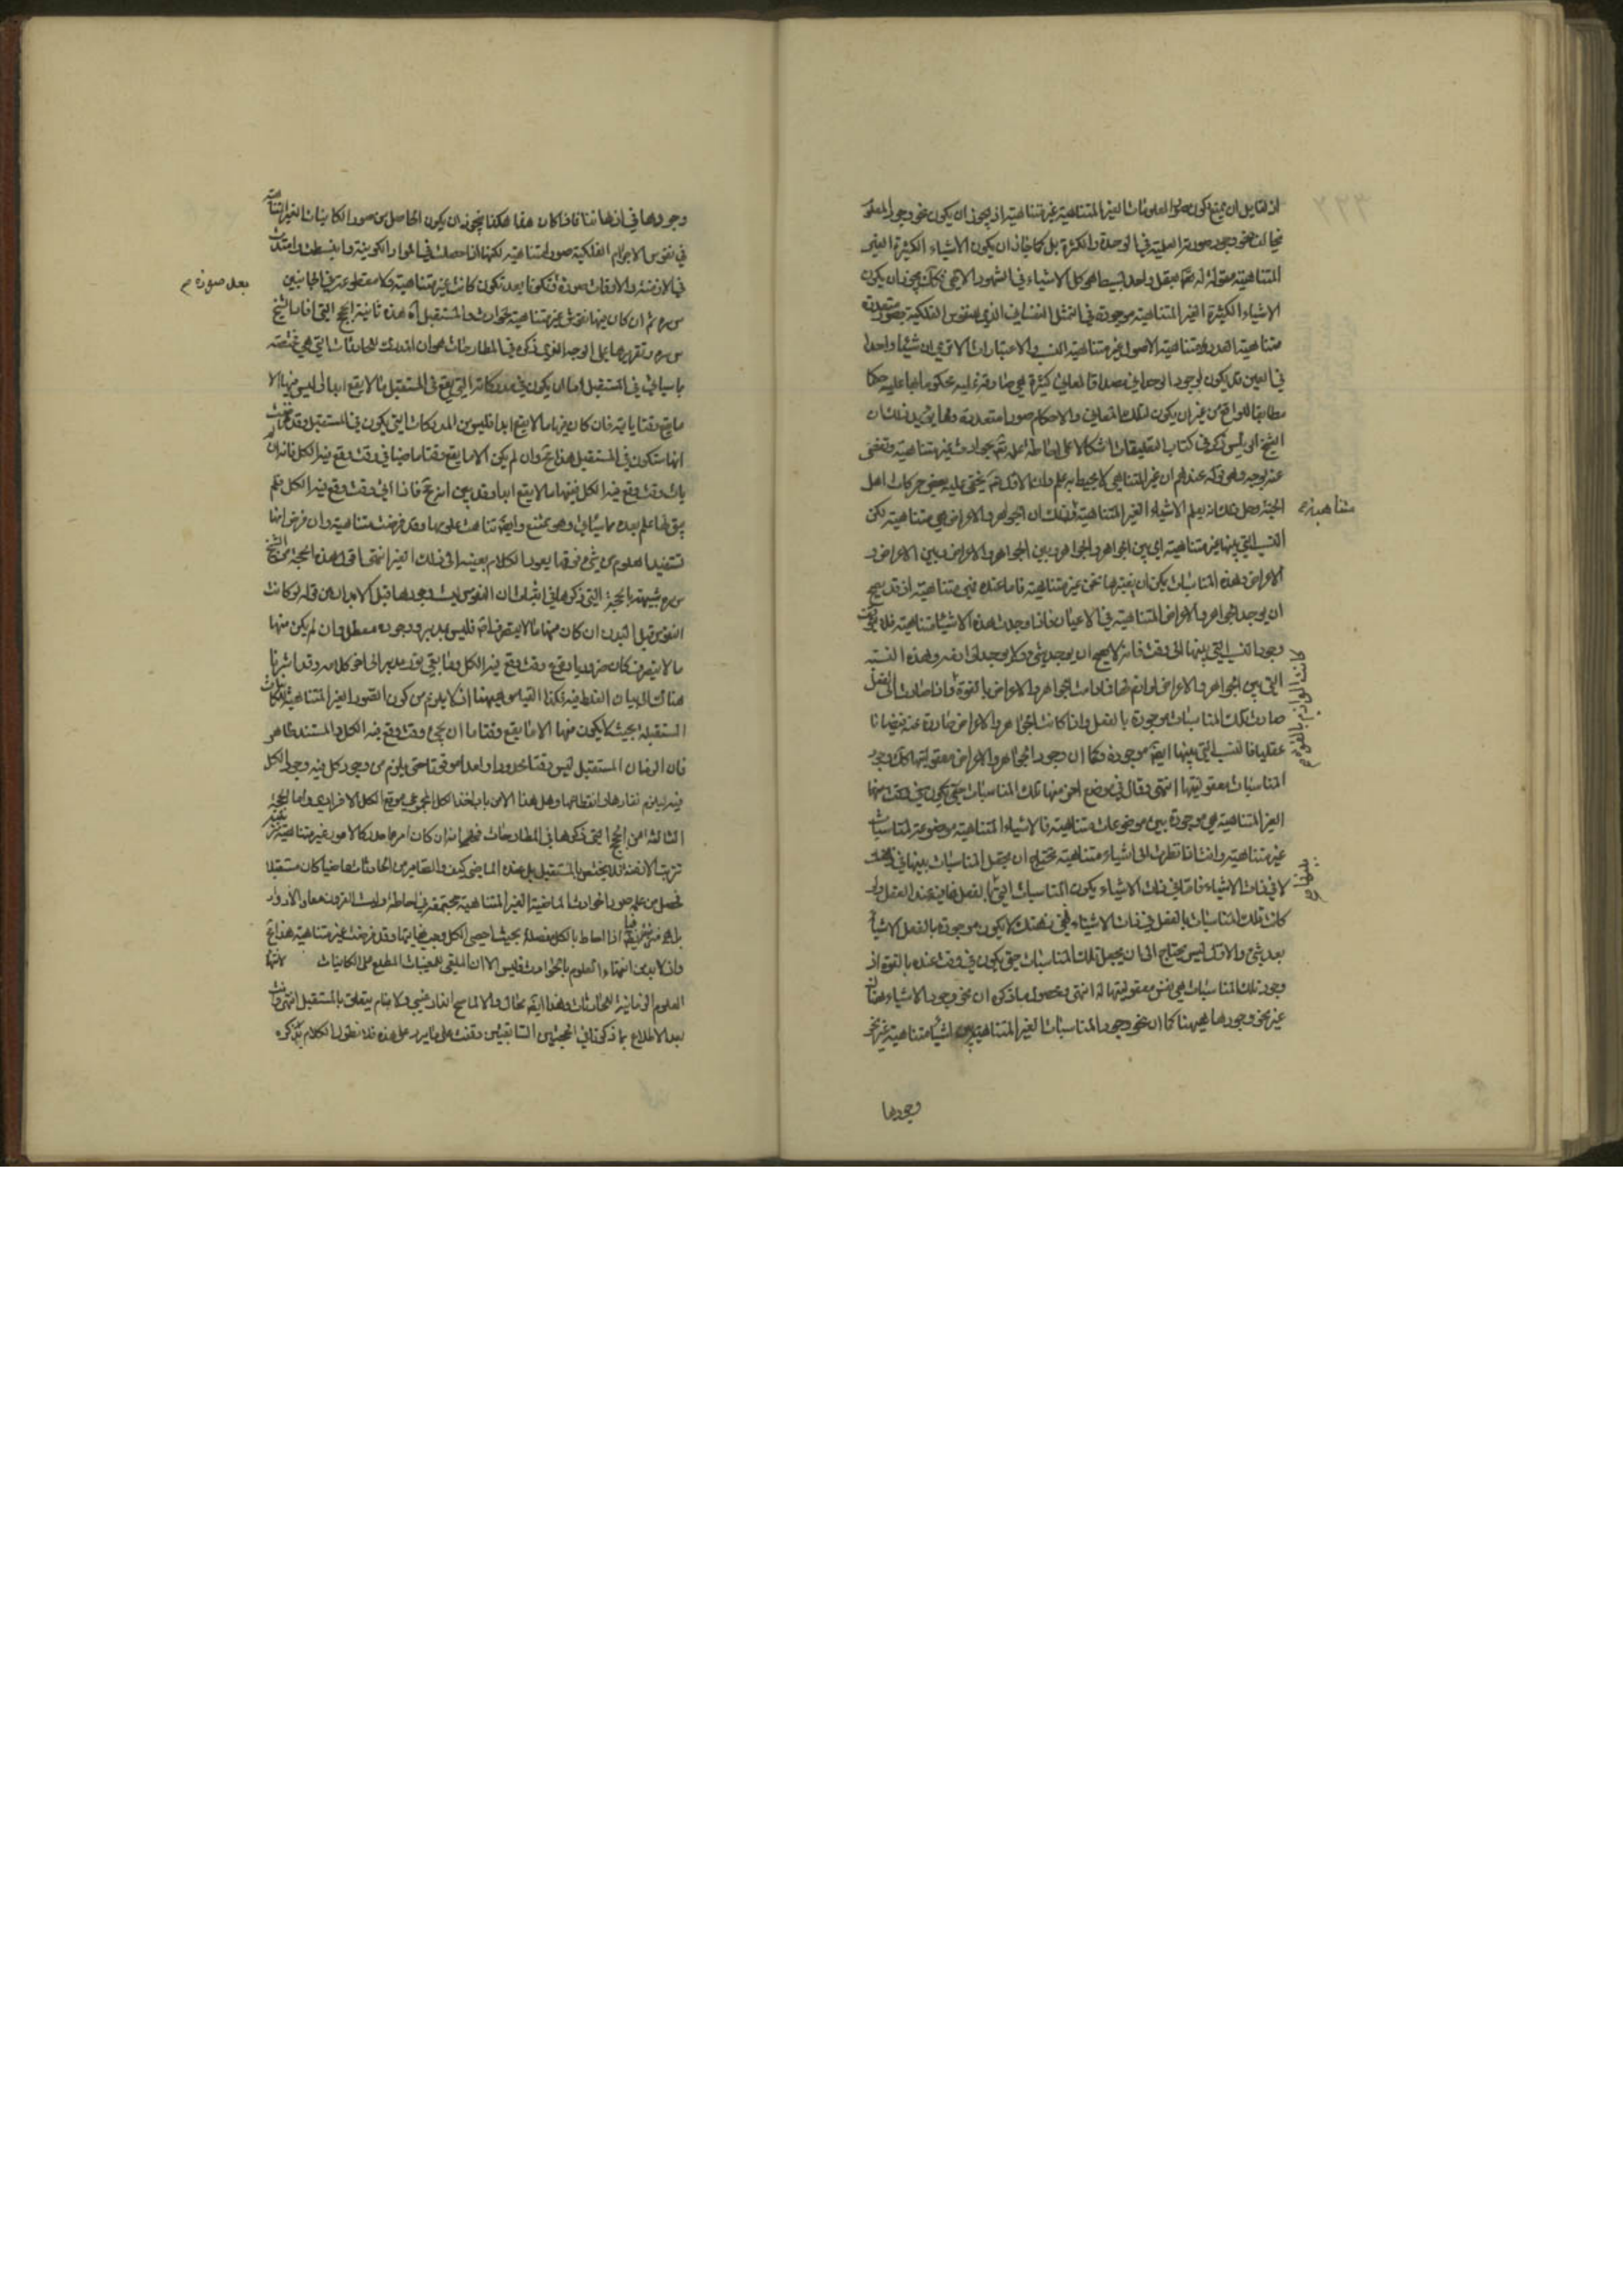 اذ لقايل ان يمنع كون صور المعلومات الغير المتناهية غير متناهية اذ يجوز ان يكون نحو وجود المعلوم
مخالفا لنحو وجود صورته العلمية في الوحدة والكثرة بل كما جاز ان يكون الاشياء الكثيرة الغير
المتناهية معقولة له تعالى بعقل واحد بسيط هو كل الاشياء في الشهود الالهي فكذلك يجوز ان يكون
الاشياء الكثيرة الغير المتناهية موجودة في التمثل النفساني الذي للنفوس الفلكية بصور متعددة
متناهية العدد متناهية الاصول غير متناهية النسب والاعتبارات الا ترى ان شيئا واحدا
في العين قد يكون لوجود الوحداني مصداقا لمعاني كثيرة هي صادقة عليه محكوما بها عليه حكما
مطابقا للواقع من غير ان يكون لتلك المعاني والاحكام صور متعددة ومما يؤيد ذلك ان
الشيخ الرئيس ذكر في كتاب التعليقات اشكالا على احاطة علمه تعالى بحوادث غير متناهية وتفصى
عنه بوجه وهو قوله عندهم ان غير المتناهي لا يحيط به علم وان الاول تعالى يخفى عليه بعض حركات اهل
الجنة وحل ذلك انه يعلم الاشياء الغير المتناهية وذلك ان الجواهر والاعراض هي متناهية لكن
النسب التي بينها غير متناهية اي بين الجواهر والجواهر وبين الجواهر والاعراض وبين الاعراض و
الاعراض وهذه المناسبات يمكن ان يعتبرها نحن غير متناهية فاما عنده فهي متناهية اذ قد يصح
ان يوجد الجواهر والاعراض المتناهية في الاعيان فاذا وجدت هذه الاشياء متناهية فلا يتوقف
وجود النسب التي بينها الى وقت فانه لا يصح ان يوجد شيء ولا يوجد لوازمه وهذه النسبة
التي بين الجواهر والاعراض لوازم لها فما دامت الجواهر والاعراض بالقوة فاذا صارت الى الفعل
صارت تلك المناسبات موجودة بالفعل واذا كانت الجواهر والاعراض صادرة عنه فيضانا
عقليا فالنسب التي بينها ايضا موجودة وكما ان وجود الجواهر والاعراض معقوليتها كذلك وجود
المناسبات معقوليتها انتهى وقال في موضع اخر منها تلك المناسبات
الغير المتناهية هي موجودة بين موضوعات متناهية فالاشياء المتناهية موضوعة لمناسبات
غير متناهية وانت اذا نظرت الى اشياء متناهية تحتاج ان يجعل المناسبات بينها في ذهنك
لا في ذات الاشياء فاما في ذات الاشياء يكون المناسبات التي لها بالفعل
كانت تلك المناسبات بالفعل في ذات الاشياء ففي ذهنك لا يكون موجودة بالفعل الا شيئا
بعد شيء والاول ليس يحتاج الى ان يجعل تلك المناسبات حتى يكون في وقت عنده بالقوة اذ
وجود تلك المناسبات هي نفس معقوليتها له انتهى ومحصول ما ذكره ان نحو وجود الاشياء هناك
غير نحو وجودها ههنا كما ان نحو وجود المناسبات الغير المتناهية بين اشياء متناهية غير نحو
وجودها
متناهية م
كانت لوازم بالقوة م
وجودها في اذهاننا فاذا كان هذا هكذا فيجوز ان يكون الحاصل من صور الكاينات الغير المتناهية
في نفوس الاجرام الفلكية صور متناهية لكنها اذا حصلت في المواد الكونية وانبسطت وامتدت
في الازمنة والاوقات صورة فتكونا بعد تكون كانت غير متناهية ولا مقطوعة في الجانبين
بعد صورة م
س ره ثم ان كان فيها نقوش غير متناهية لحوادث في المستقبل اه هذه ثانية الحجج التي افادها الشيخ
س ره وتقريرها على الوجه الذي ذكره في المطارحات هو ان المدركات للحادثات التي هي مختصة
بما سيأتي في المستقبل اما ان يكون في مدركاته التي يقع في المستقبل ما لا يقع ابدا او ليس فيها الا
ما يقع وقتا ما البتة فان كان فيها ما لا يقع ابدا فليس من المدركات التي يكون في المستقبل وقد فرضت
انها ستكون في المستقبل هذا محال وان لم يكن الا ما يقع وقتا ما ضبطا في وقت وقع فيه الكل فانه ان
يأت وقت وقع فيه الكل ففيها ما لا يقع ابدا وقد بين انه محال فاذا اتى وقت وقع فيه الكل فلم
يبق لها علم بعده بما سيأتي وهو ممتنع وايضا تناهت علومها وقد فرضت متناهية وان فرض انها
تستفيد العلوم من شيء فوقها يعود الكلام بعينه الى ذلك الغير انتهى اقول هذه الحجة من الشيخ
س ره شبيهة بالحجة التي ذكرها في اثبات ان النفوس ليست وجودها قبل الابدان من قوله لو كانت
النفوس قبل البدن ان كان منها ما لا يتصرف اصلا فليس بمدبر ووجوده معطل وان لم يكن منها
ما لا يتصرف كان ضروريا وقوع وقت وقع فيه الكل وما بقي نور مدبر الى اخر كلامه وقد اشرنا
هناك الى بيان الغلط فيه فكذا القياس ههنا اذ لا يلزم من كون الصور الغير المتناهية للكاينات
المستقبلة بحيث لا يكون منها الا ما يقع وقتا ما ان يجيء وقت وقع فيه الكل والمستند ظاهر
فان الزمان المستقبل ليس وقتا محدودا واحدا موقتا حتى يلزم من وجود كل فيه وجود الكل
فيه ليلزم نفادها وانقطاعها وهل هذا الا من باب اخذ الكل المجموعي موقع الكل الافرادي واما الحجة
الثالثة من الحجج التي ذكرها في المطارحات فهي انه ان كان امر ما مدركا لامور غير متناهية
ترتبت الازمنة فلا يختص بالمستقبل بل عنده الماضي كيف والصاير من الحادثات ماضيا كان مستقبلا
فحصل من علمه صور الحوادث الماضية الغير المتناهية مجتمعة في احاطة ادوات القرون معاد الادوار
اذا احاط بالكل مفصلة بحيث احصى الكل وجب نهايتها وقد فرضت غير متناهية هذا محال
واذ لا بد من انتهاء العلوم بالحوادث فليس الا ان الملقى للمغيبات المطلع على الكاينات
العلوم الزمانية الحادثات وهذا ايضا محال والا لما صح انذار غيبي ولا منام يتعلق بالمستقبل انتهى وانت
بعد الاطلاع بما ذكرنا في الحجتين السابقتين وقفت على ما يرد على هذه فلا نطول الكلام بذكره